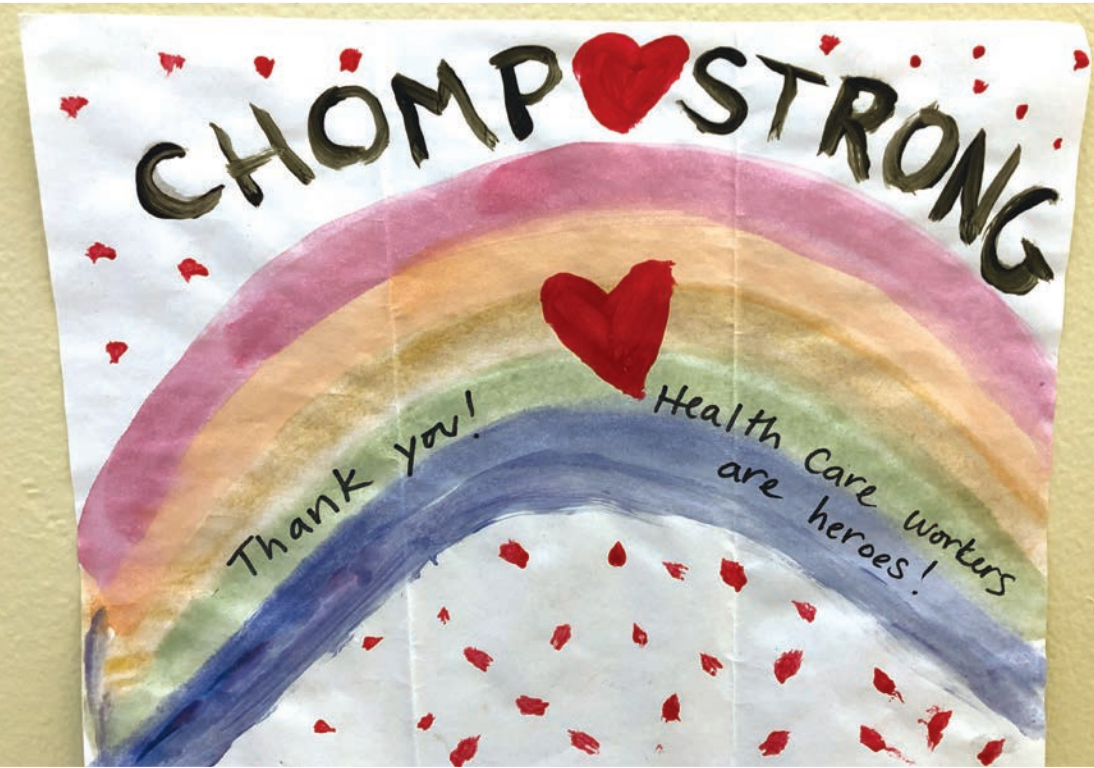 CHOMP STRONG
Thank you!
Health Care workers
are heroes!